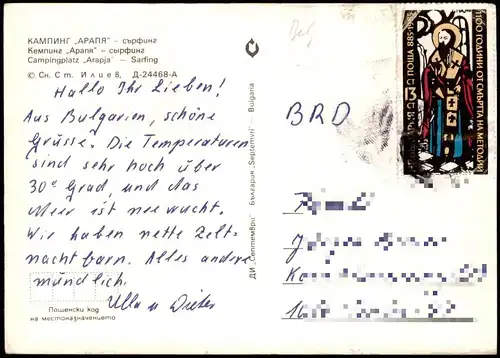 КАМПИНГ „АРАПЯ" – сърфинг
Кемпинг „Арапя" – сырфинг
Campingplatz „Arapja" – Sarfing
© Сн. Ст. Илиев, Д-24468-А
Hallo Ihr Lieben!
Aus Bulgarien, schöne
Grüsse. Die Temperaturen
sind sehr hoch über
30° Grad, und das
Meer ist
Wir haben nette Zelt-
nachbarn. Alles andere
mündlich.
Ulla u Dieter
Пощенски код
на местоназначението
ДИ „Септември" България „Septemvri" Bulgaria
BRD
НР БЪЛГАРИЯ 13 СТ ПОЩА 885·1985
1100 ГОДИНИ ОТ СМЪРТТА НА МЕТОДИЙ